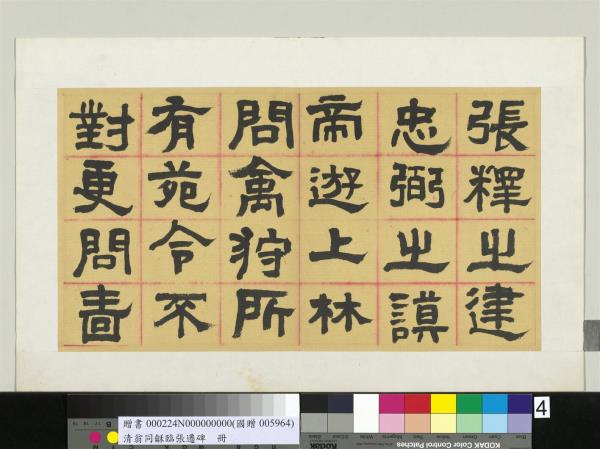 張釋之建
忠弼之謨
帝遊上林
問禽狩所
有苑令不
對更問嗇
4
贈書 000224N000000000(國贈 005964)
清翁同龢臨張遷碑 冊
KODAK Color Control Patches